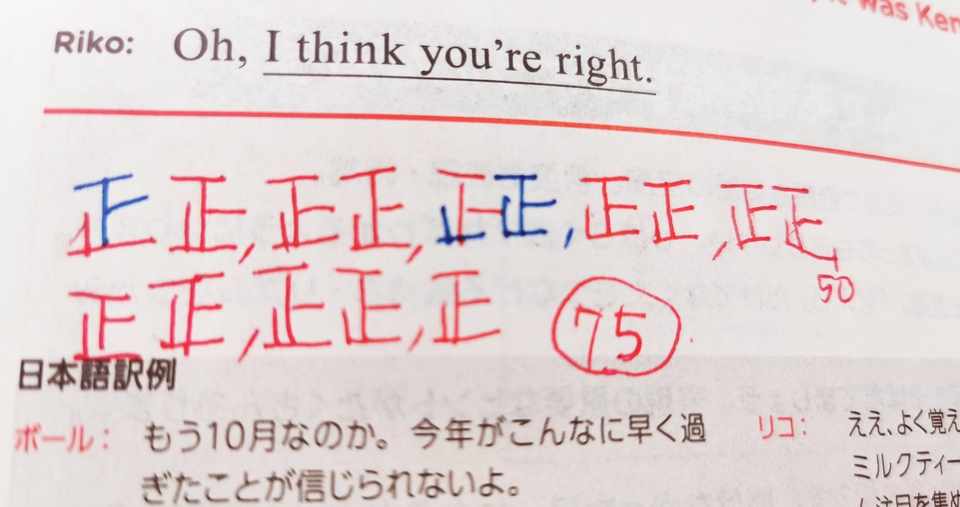 was Ken
Riko: Oh, I think you're right.
正 正, 正 正, 正 正, 正 正, 正 正
50
正 正, 正 正, 正 75
日本語訳例
ポール： もう10月なのか。今年がこんなに早く過
ぎたことが信じられないよ。
リコ： ええ、よく覚え
ミルクティー